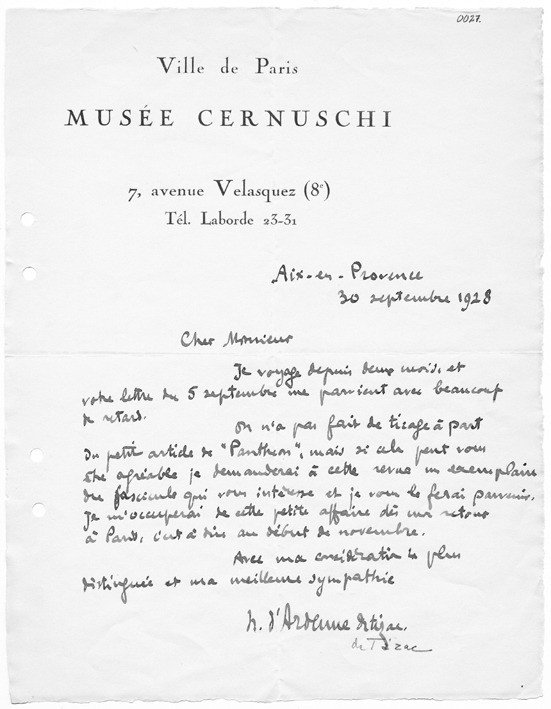 0027.
Ville de Paris
MUSÉE CERNUSCHI
7, avenue Velasquez (8e)
Tél. Laborde 23-31
Aix-en-Provence
30 septembre 1928
Cher Monsieur
Je voyage depuis deux mois, et
votre lettre du 5 septembre me parvient avec beaucoup
de retard.
On n'a pas fait de tirage à part
du petit article de "Pantheon", mais si cela peut vous
être agréable je demanderai à cette revue un exemplaire
du fascicule qui vous intéresse et je vous le ferai parvenir.
Je m'occuperai de cette petite affaire dès mon retour
à Paris, c'est à dire au début de novembre.
Avec ma considération la plus
distinguée et ma meilleure sympathie
H. d'Ardenne de Tizac.
de Tizac